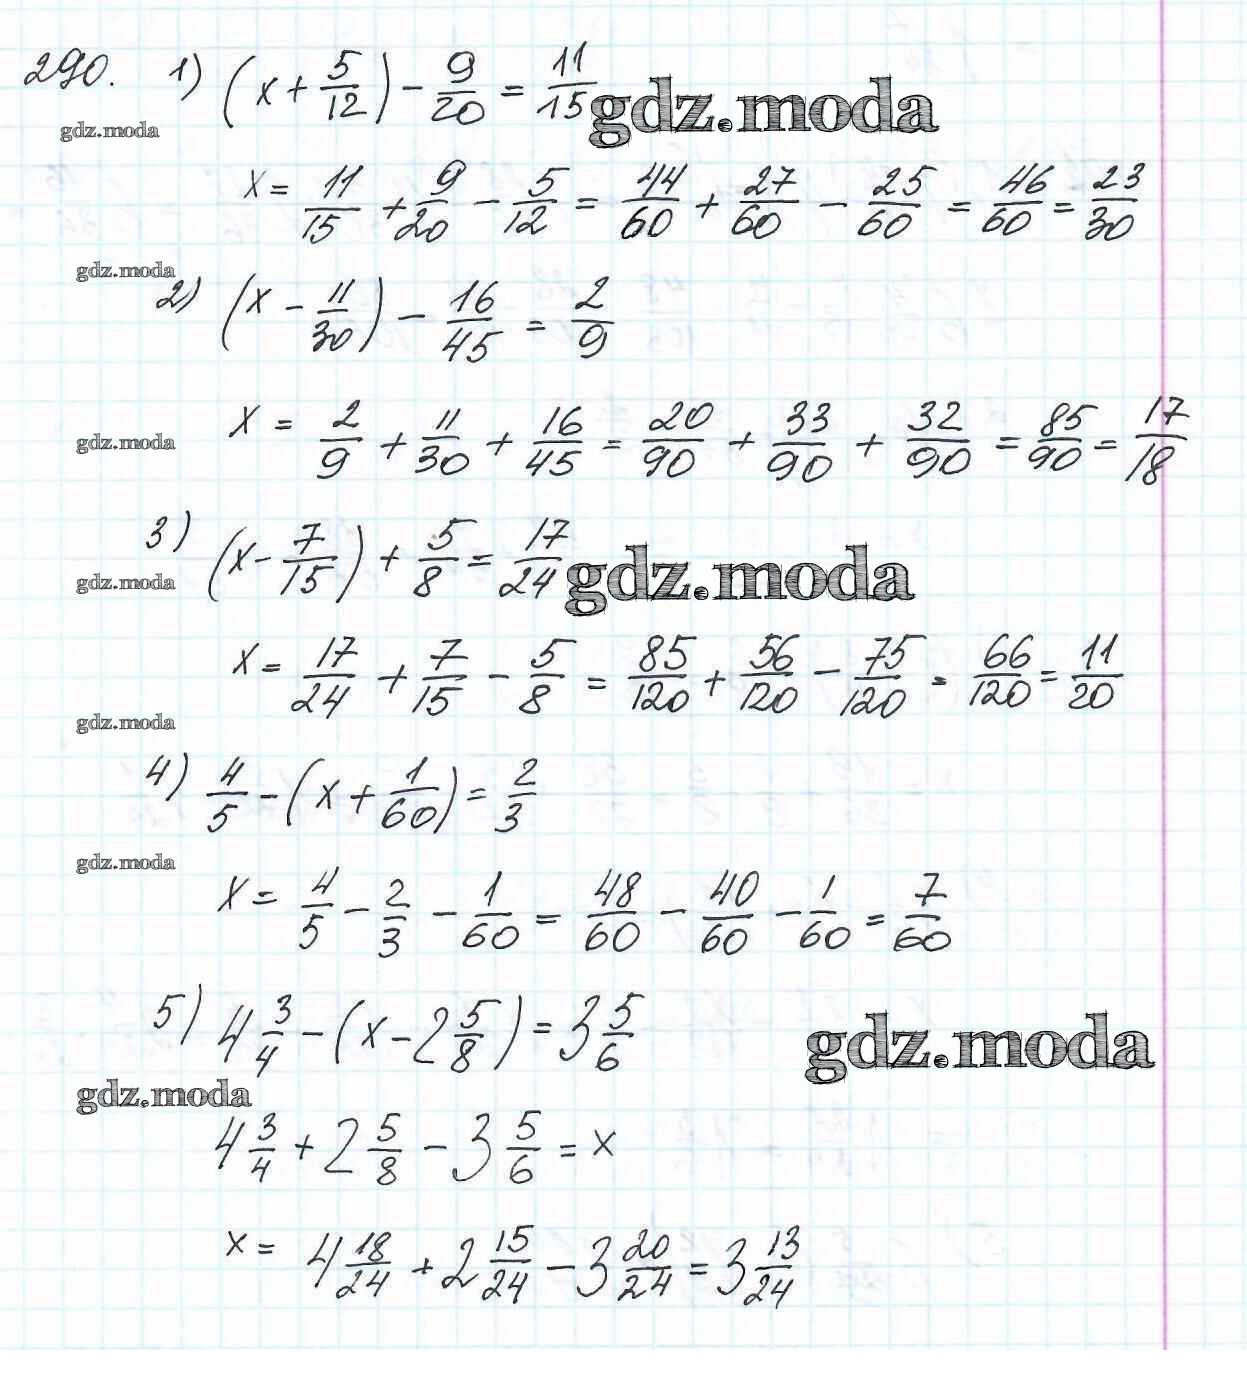 290. 1) (x + 5/12) - 9/20 = 11/15
gdz.moda
gdz.moda
x = 11/15 + 9/20 - 5/12 = 44/60 + 27/60 - 25/60 = 46/60 = 23/30
gdz.moda
2) (x - 11/30) - 16/45 = 2/9
x = 2/9 + 11/30 + 16/45 = 20/90 + 33/90 + 32/90 = 85/90 = 17/18
gdz.moda
3) (x - 7/15) + 5/8 = 17/24
gdz.moda
gdz.moda
x = 17/24 + 7/15 - 5/8 = 85/120 + 56/120 - 75/120 = 66/120 = 11/20
gdz.moda
4) 4/5 - (x + 1/60) = 2/3
gdz.moda
x = 4/5 - 2/3 - 1/60 = 48/60 - 40/60 - 1/60 = 7/60
5) 4 3/4 - (x - 2 5/8) = 3 5/6
gdz.moda
gdz.moda
4 3/4 + 2 5/8 - 3 5/6 = x
x = 4 18/24 + 2 15/24 - 3 20/24 = 3 13/24